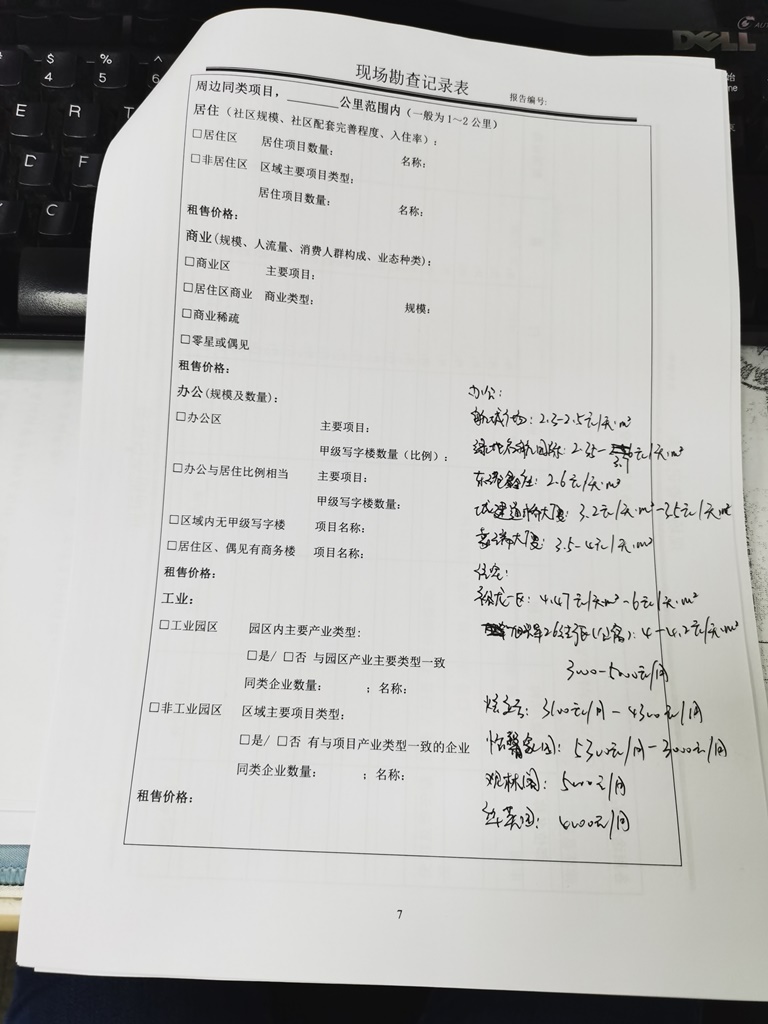 $
4
%
5
^
6
E
R
T
D
F
C
DELL
现场勘查记录表
报告编号:
周边同类项目，______公里范围内（一般为1～2公里）
居住（社区规模、社区配套完善程度、入住率）：
□居住区 居住项目数量： 名称：
□非居住区 区域主要项目类型：
居住项目数量： 名称：
租售价格：
商业(规模、人流量、消费人群构成、业态种类)：
□商业区 主要项目：
□居住区商业 商业类型： 规模：
□商业稀疏
□零星或偶见
租售价格：
办公(规模及数量)： 办公：
新城广场：2.3-2.5元/天·m²
□办公区 主要项目：
国际：2.35- 元/天·m²
3.7
甲级写字楼数量（比例）：
□办公与居住比例相当 主要项目：
2.6元/天·m²
甲级写字楼数量：
大厦：3.2元/天·m²-3.5元/天·m²
□区域内无甲级写字楼 项目名称：
大厦：3.5-4元/天·m²
□居住区、偶见有商务楼 项目名称：
租售价格： 住宅：
工业： 一区：4.47元/天m²-6元/天·m²
□工业园区 园区内主要产业类型:
4-4.2元/天·m²
□是/ □否 与园区产业主要类型一致
3000-5000元/月
同类企业数量： ；名称：
□非工业园区 区域主要项目类型：
3100元/月-4300元/月
□是/ □否 有与项目产业类型一致的企业
怡馨家园：5300元/月-3000元/月
同类企业数量： ；名称：
观林园：5000元/月
租售价格：
4000元/月
7